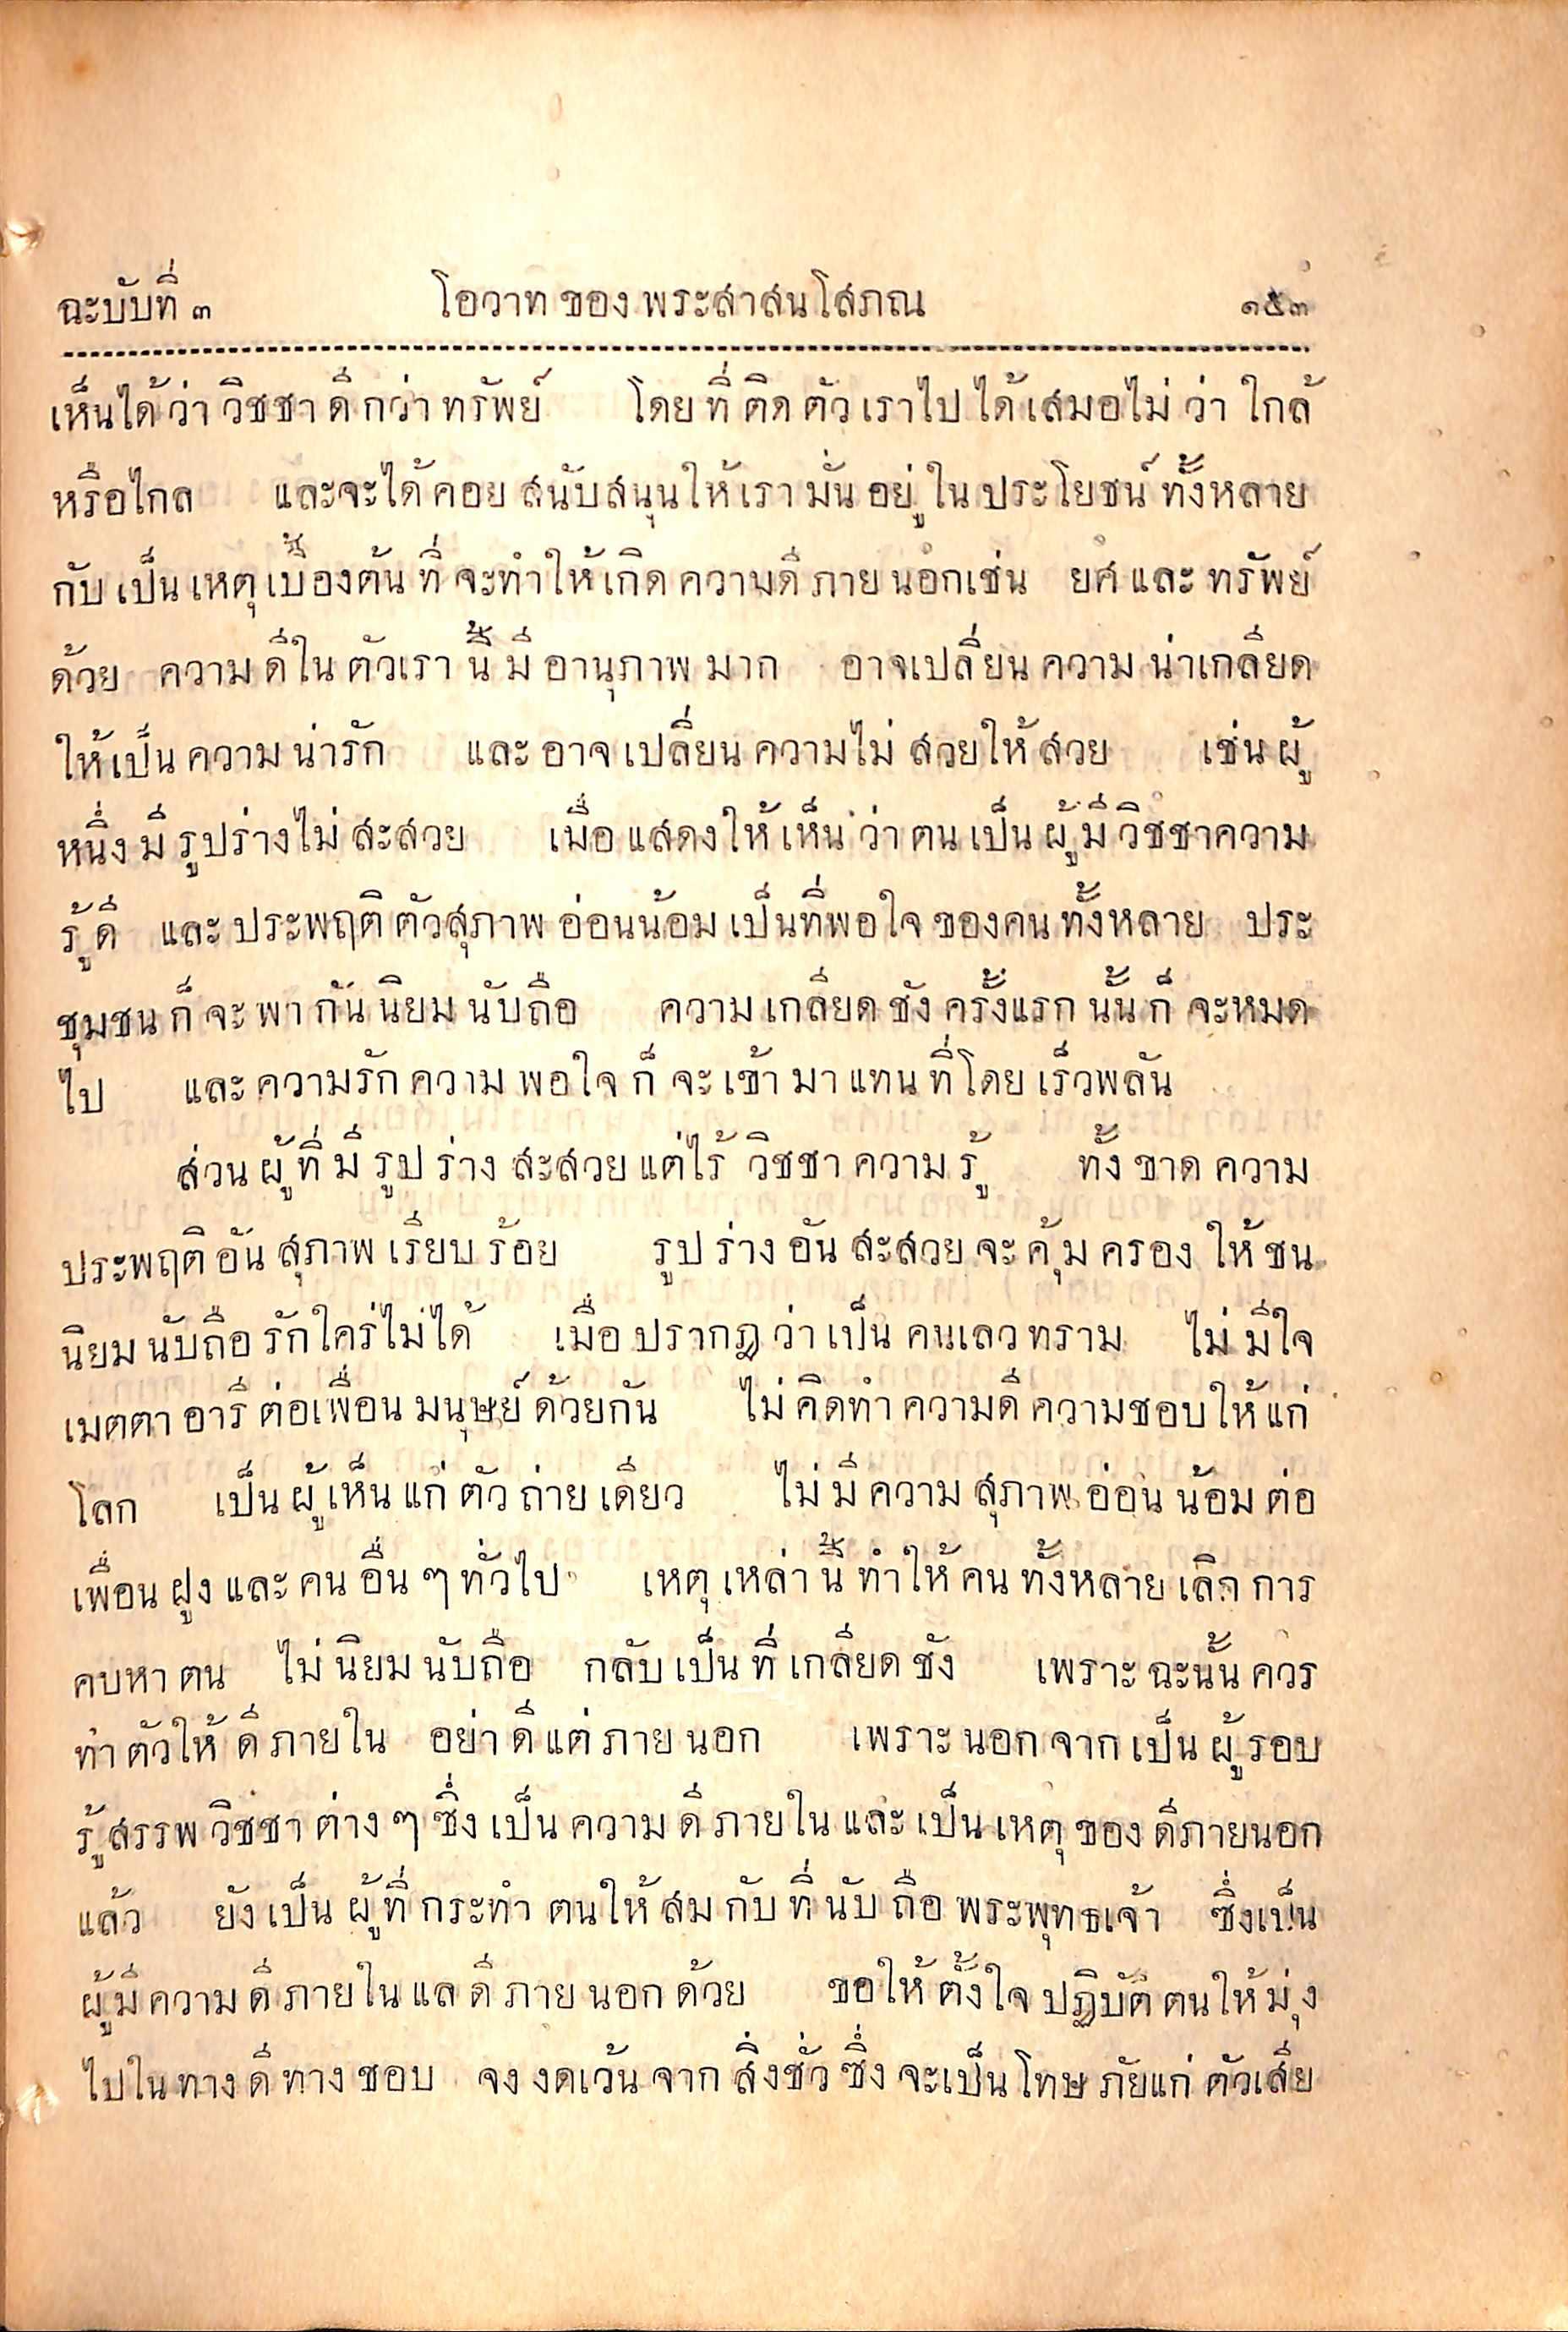 ฉะบับที่ ๓ โอวาทของพระสาสนโสภณ ๑๕๓
เห็นได้ว่าวิชชาดีกว่าทรัพย์ โดยที่ติดตัวเราไปได้เสมอไม่ว่าใกล้
หรือไกล และจะได้คอยสนับสนุนให้เรามั่นอยู่ในประโยชน์ทั้งหลาย
กับเป็นเหตุเบื้องต้นที่จะทำให้เกิดความดีภายนอกเช่น ยศและทรัพย์
ด้วย ความดีในตัวเรานี้มีอานุภาพมาก อาจเปลี่ยนความน่าเกลียด
ให้เป็นความน่ารัก และอาจเปลี่ยนความไม่สวยให้สวย เช่นผู้
หนึ่งมีรูปร่างไม่สะสวย เมื่อแสดงให้เห็นว่าตนเป็นผู้มีวิชชาความ
รู้ดี และประพฤติตัวสุภาพอ่อนน้อมเป็นที่พอใจของคนทั้งหลาย ประ
ชุมชนก็จะพากันนิยมนับถือ ความเกลียดชังครั้งแรกนั้นก็จะหมด
ไป และความรักความพอใจก็จะเข้ามาแทนที่โดยเร็วพลัน
ส่วนผู้ที่มีรูปร่างสะสวยแต่ไร้วิชชาความรู้ ทั้งขาดความ
ประพฤติอันสุภาพเรียบร้อย รูปร่างอันสะสวยจะคุ้มครองให้ชน
นิยมนับถือรักใคร่ไม่ได้ เมื่อปรากฏว่าเป็นคนเลวทราม ไม่มีใจ
เมตตาอารีต่อเพื่อนมนุษย์ด้วยกัน ไม่คิดทำความดีความชอบให้แก่
โลก เป็นผู้เห็นแก่ตัวถ่ายเดียว ไม่มีความสุภาพอ่อนน้อมต่อ
เพื่อนฝูงและคนอื่นๆทั่วไป เหตุเหล่านี้ทำให้คนทั้งหลายเลิกการ
คบหาตน ไม่นิยมนับถือ กลับเป็นที่เกลียดชัง เพราะฉะนั้นควร
ทำตัวให้ดีภายใน อย่าดีแต่ภายนอก เพราะนอกจากเป็นผู้รอบ
รู้สรรพวิชชาต่างๆซึ่งเป็นความดีภายในและเป็นเหตุของดีภายนอก
แล้ว ยังเป็นผู้ที่กระทำตนให้สมกับที่นับถือพระพุทธเจ้า ซึ่งเป็น
ผู้มีความดีภายในแลดีภายนอกด้วย ขอให้ตั้งใจปฏิบัติตนให้มุ่ง
ไปในทางดีทางชอบ จงงดเว้นจากสิ่งชั่วซึ่งจะเป็นโทษภัยแก่ตัวเสีย